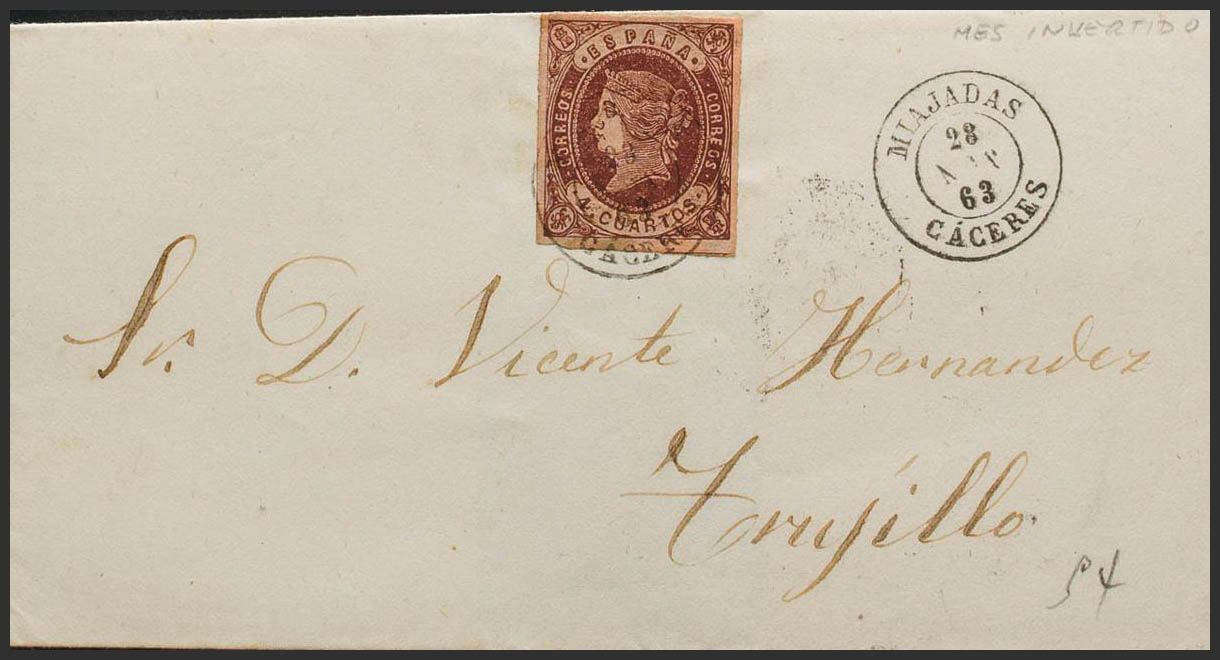 MES INVERTIDO
ESPAÑA
CORREOS
CORREOS
4 CUARTOS
MIAJADAS
28
63
CÁCERES
Sr. D. Vicente Hernandez
Trujillo
54